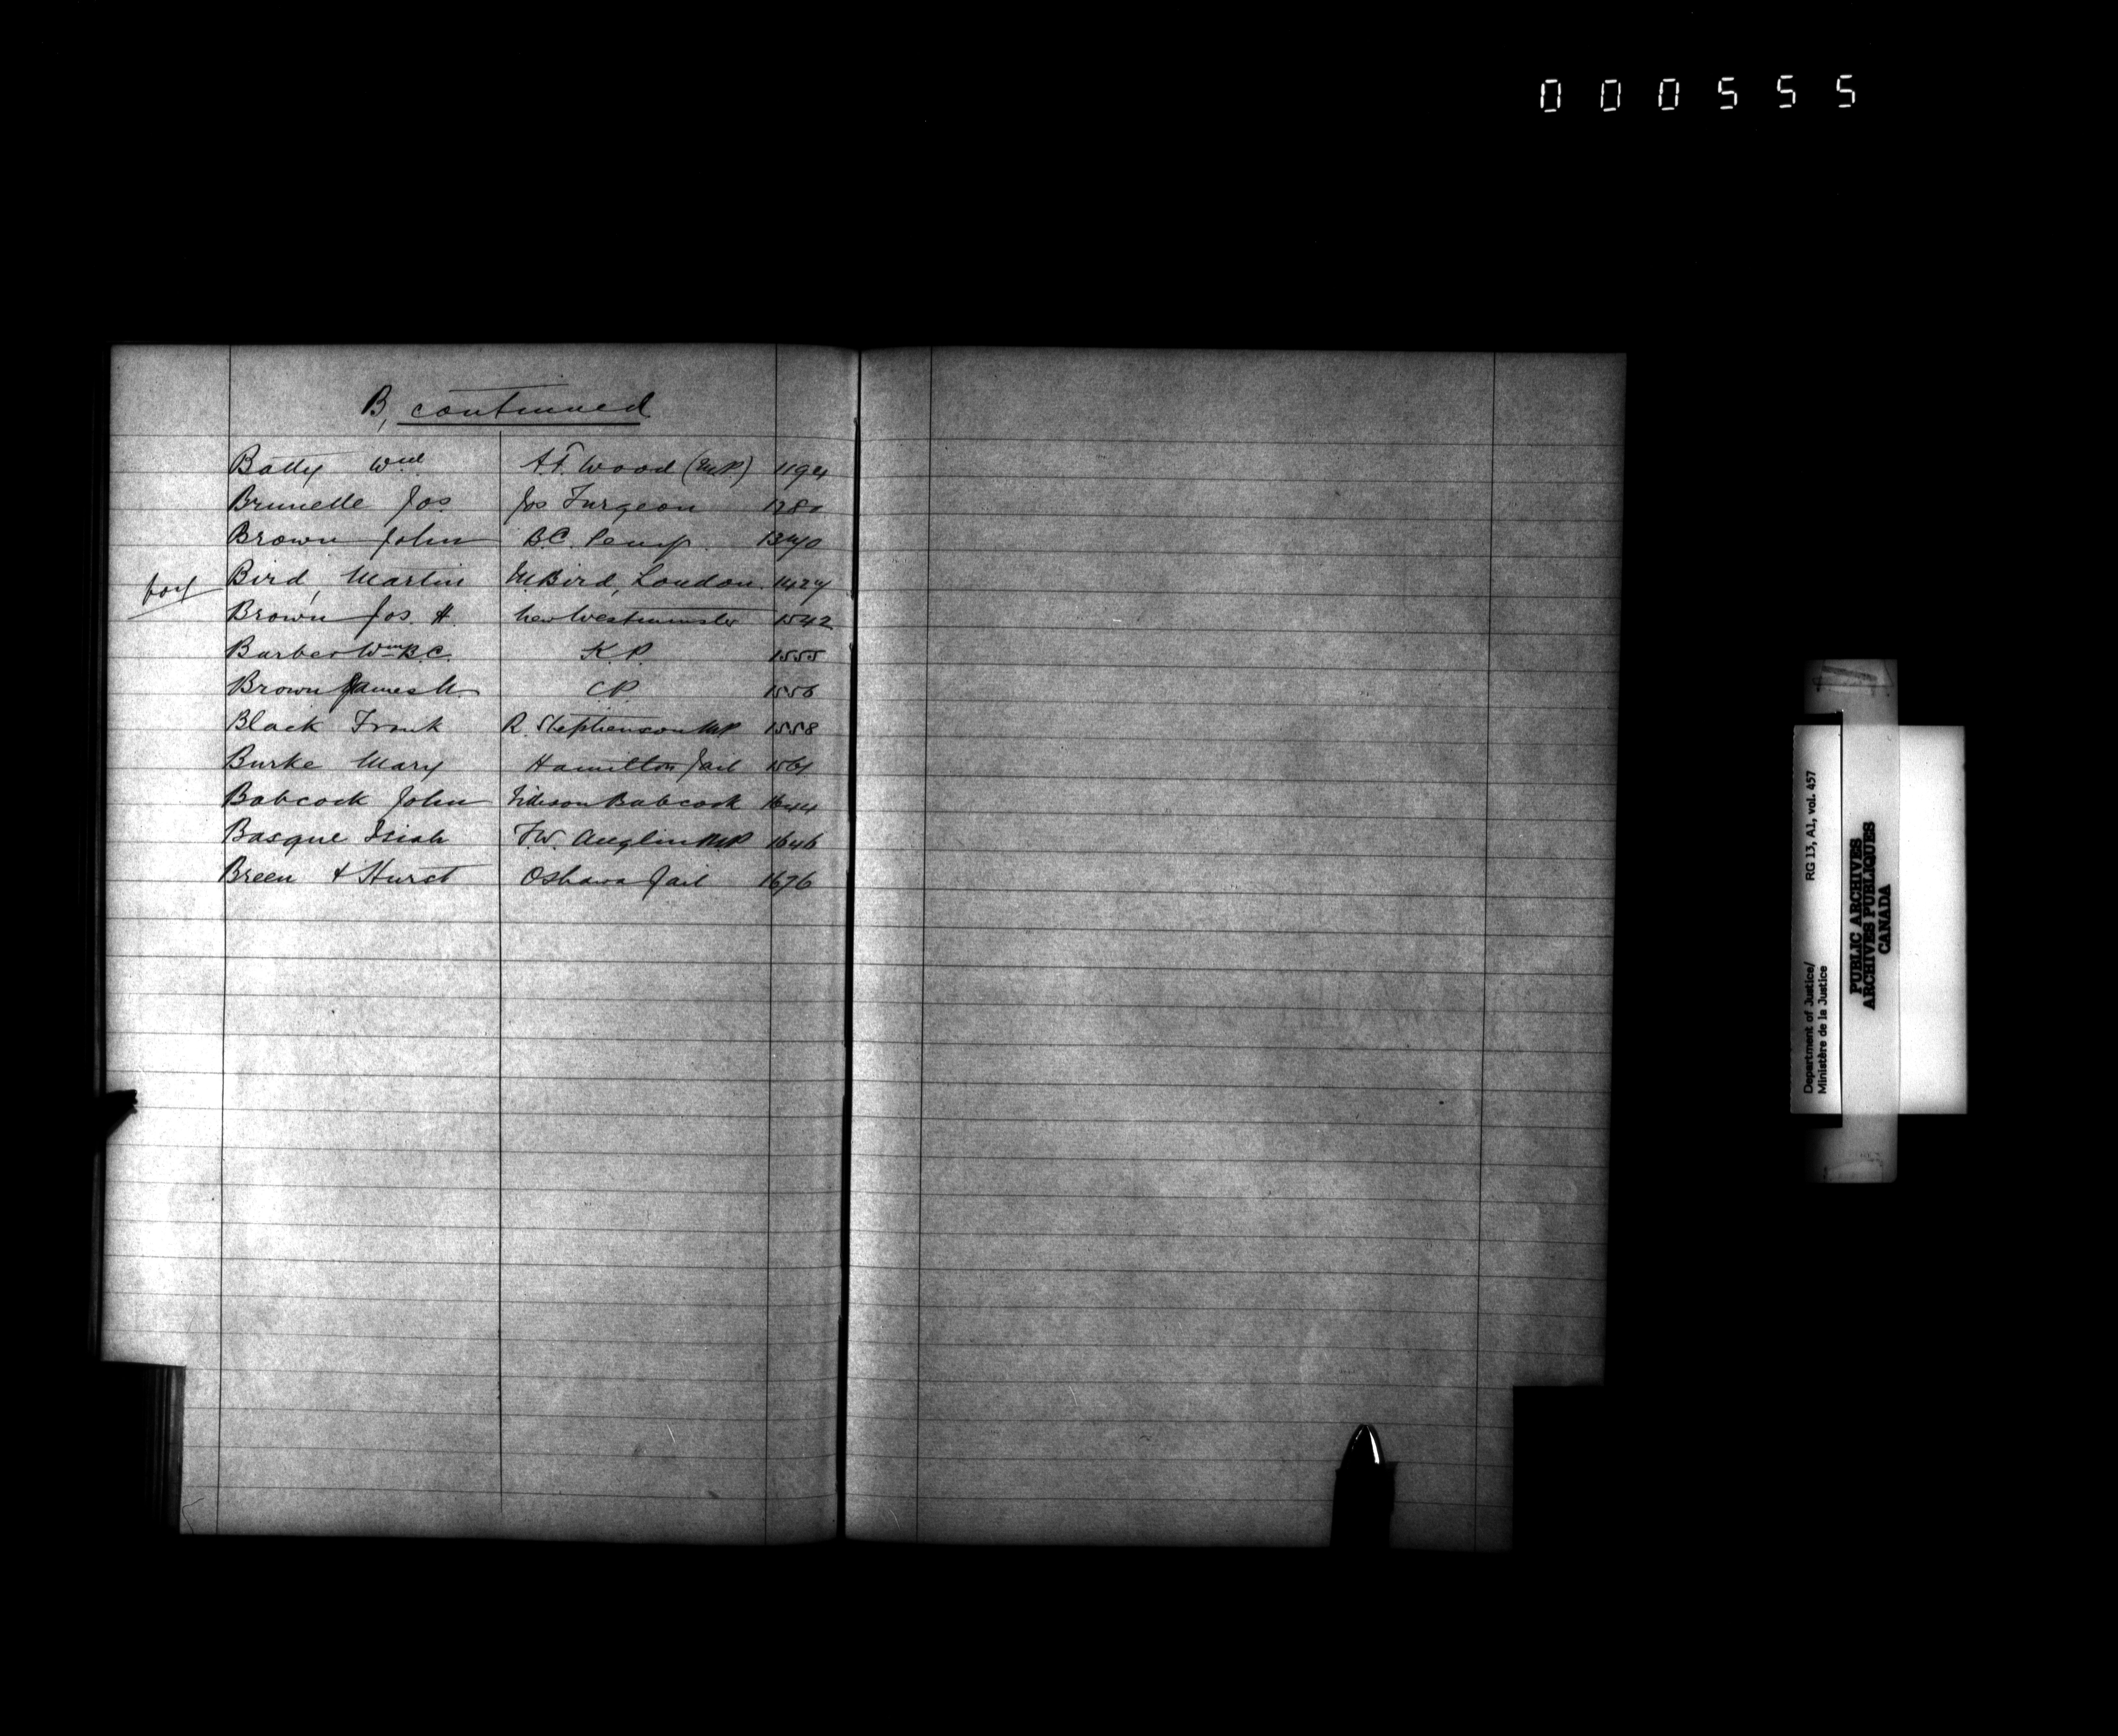 000555
B, continued
Batty Wm A.F. Wood (M.P.) 1194
Brunelle Jos Jos Turgeon 1280
Brown John B.C. Peny.
Bird, Martin M Bird, London 1427
Brown Jos. H. New Westminster 1542
Barber Wm B.C. K.P. 1555
Brown James C.P. 1556
Black Frank R. Stephenson MP 1558
Burke Mary Hamilton Jail 1564
Babcock John Babcock 1644
Basque Isiah T.W. Anglin MP 1646
Breen & Hurst Oshawa Jail 1676
Department of Justice/ RG 13, A1, vol. 457
Ministère de la Justice
PUBLIC ARCHIVES
ARCHIVES PUBLIQUES
CANADA